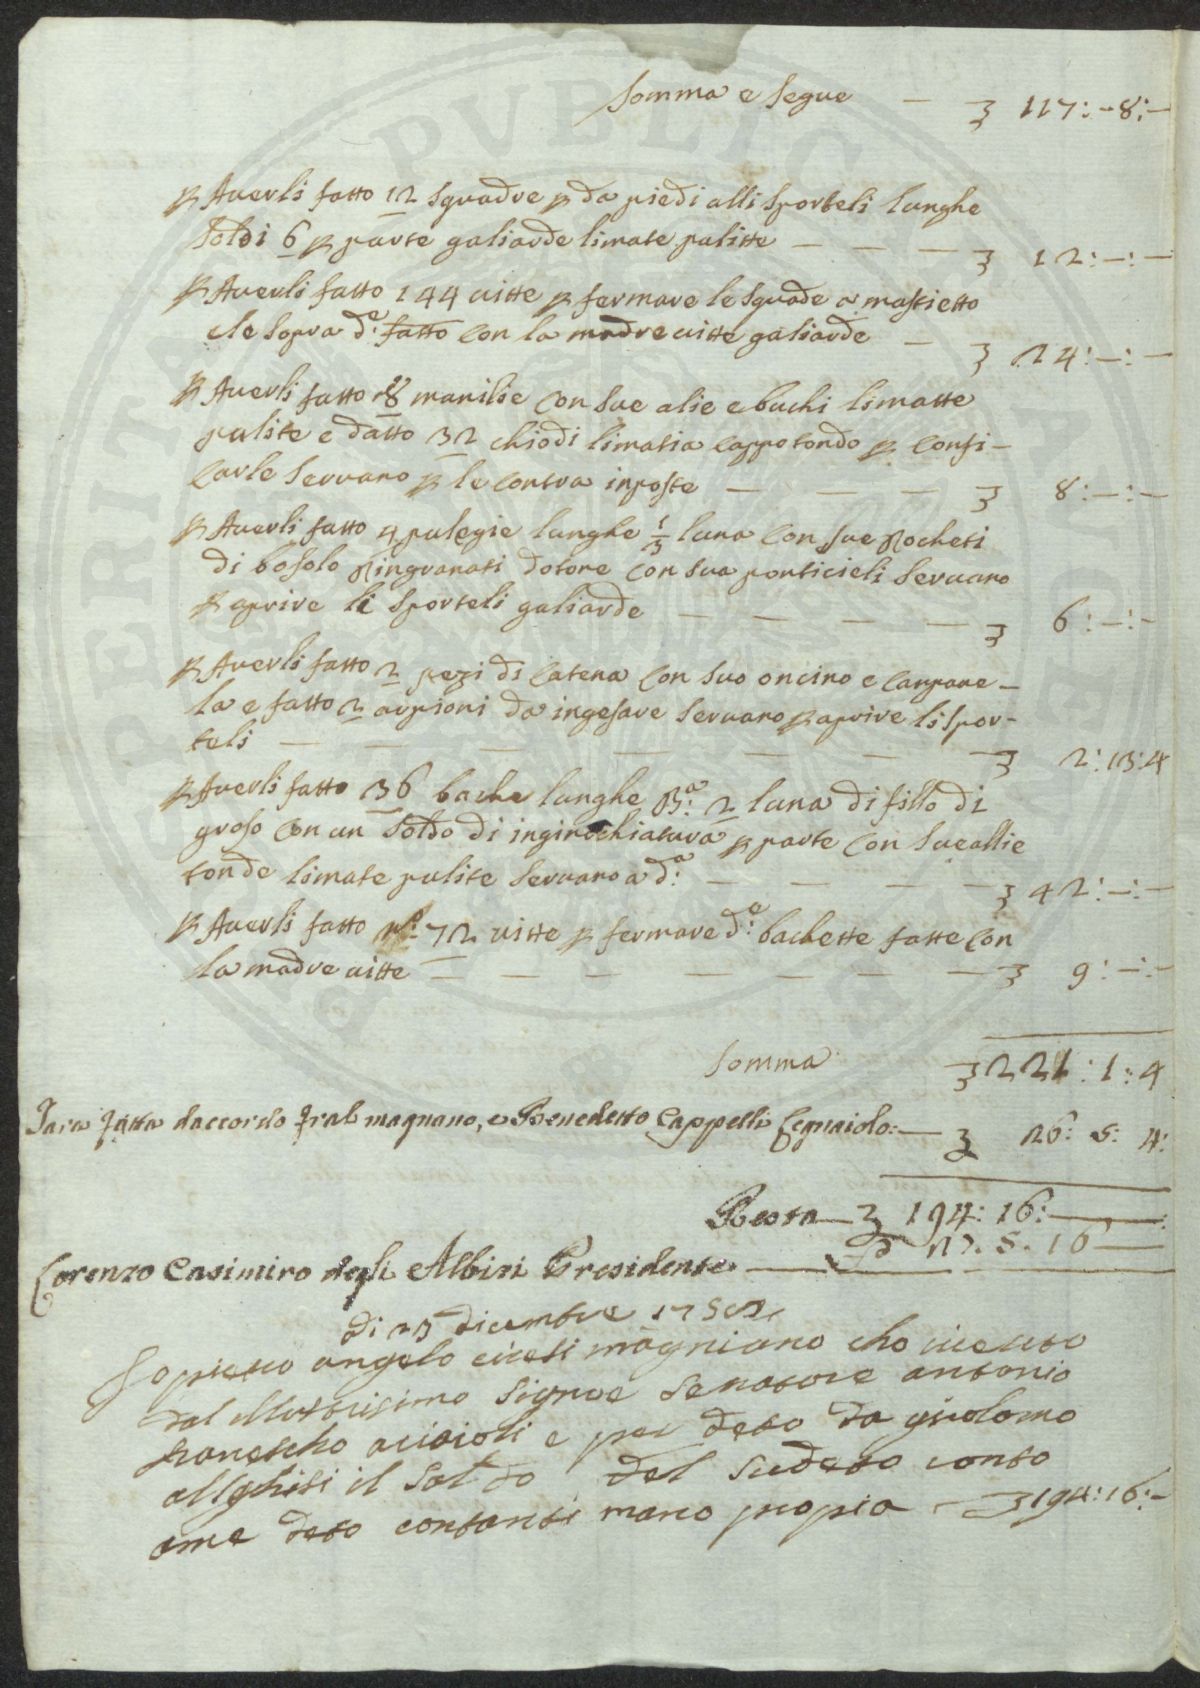 Somma e Segue — 117:-8:-
p Averli fatto 12 squadre p da piedi alli sporteli lunghe
soldi 6 p parte galiarde limate pulitte — — — 12:-:-
p Averli fatto 144 vitte p fermare le squade a mastietto
e le sopra de: fatto con la madre vitte galiarde — 24:-:-
p Averli fatto 8 manilie con sue alie e buchi limatte
pulite e datto 32 chiodi limatia cappo tondo p confi-
carle servano p le contra inposte — — — 8:-:-
p Averli fatto 4 pulegie lunghe 1/3 luna con sue Rocheti
di bosolo Ringranati dotone con sua ponticieli servano
p aprire li sporteli galiarde — — — — 6:-:-
p Averli fatto 2 pezi di catena con suo oncino e canpane-
la e fatto 2 arpioni da ingesare servano p aprire li spor-
teli — — — — — — — 2:13:4
p Averli fatto 36 bache lunghe Ba: 2 luna di fillo di
groso con un soldo di inginochiatura p parte con sue allie
tonde limate pulite servano a da: — — — — 42:-:-
p Averli fatto no: 72 vitte p fermare de: bachette fatte con
la madre vitte — — — — — — — 9:-:-
Somma 221:1:4
Tara fatta daccordo fral magnano, e Benedetto Cappelli Legnaiolo:— 26:5:4:
Resta— 194:16:—
27.5.16—
Lorenzo Casimiro degli Albizi Presidente.
di 23 dicembre
Io pietro angelo cireti magniano ho riceuto
dal illustrisimo Signore Senatore antonio
francescho aciaioli e per deto da girolamo
allghisi il saldo del sudeto conto
ame deto contanti mano propia — 194:16:-
PVBLIC